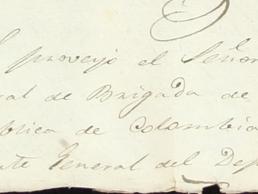 proveyó el Señor
ral de Brigada de
blica de Colombia
nte General del Dep